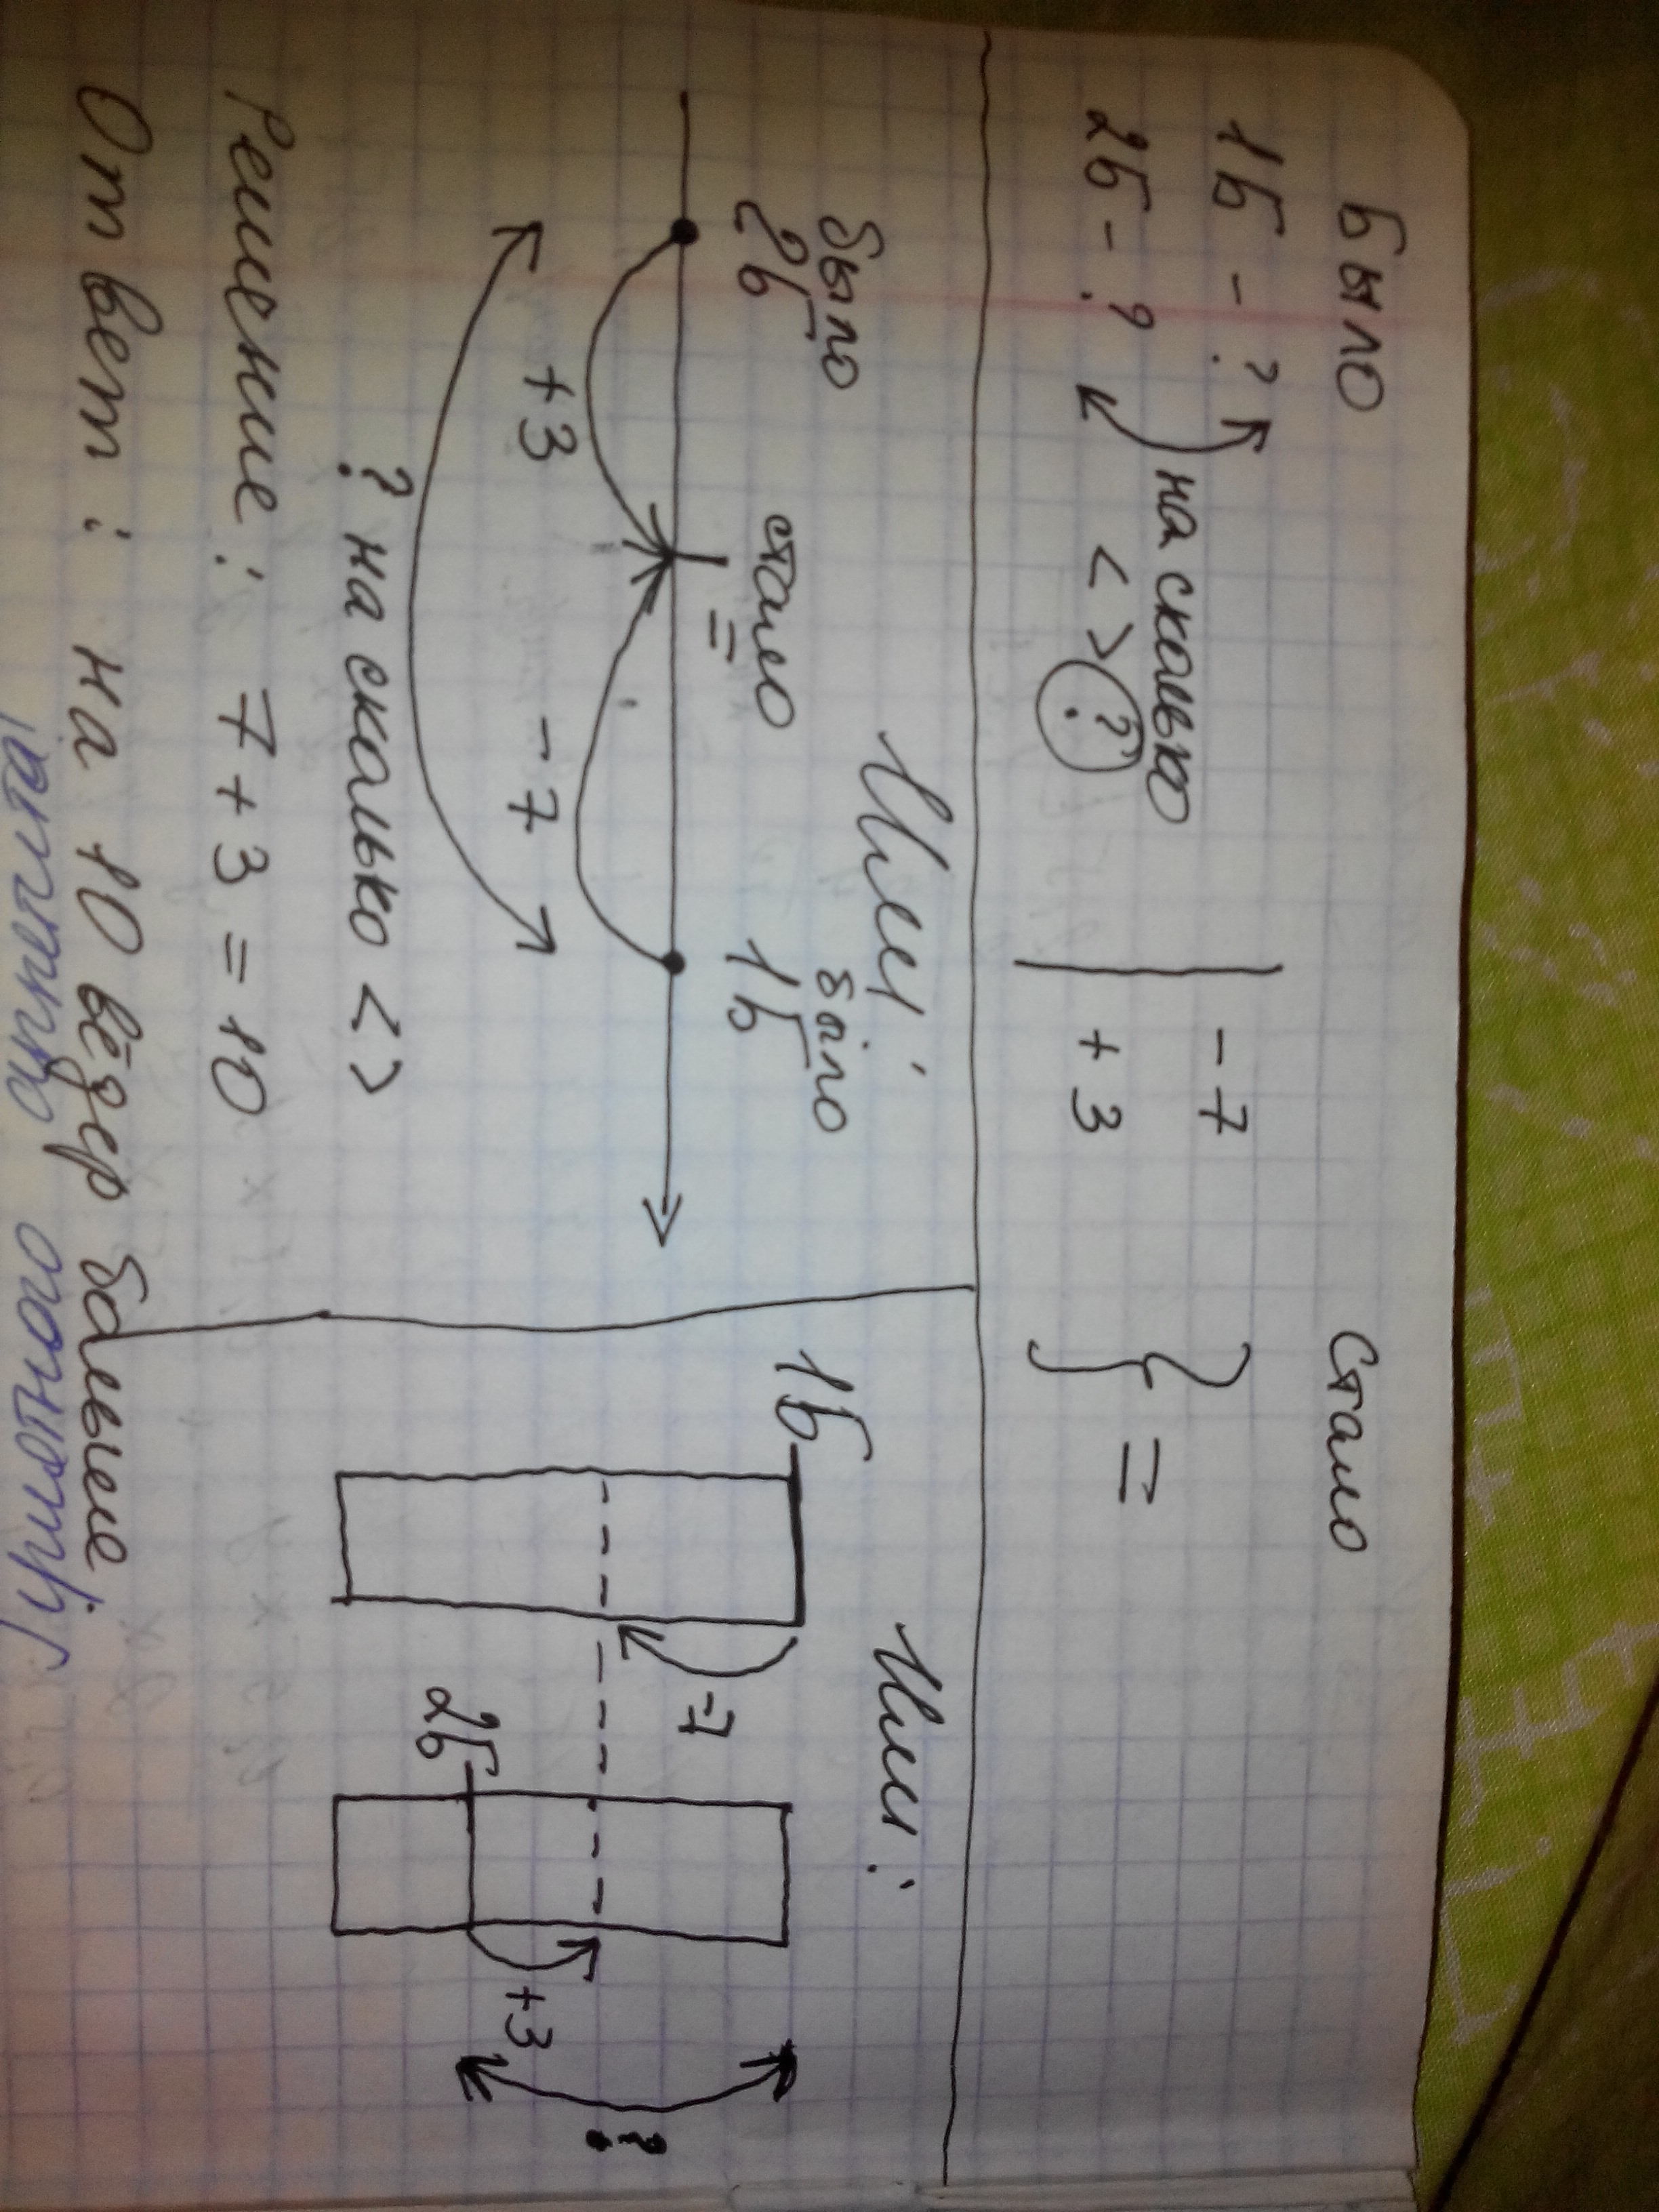 Было Стало
1Б - ? на сколько | - 7 } =
2Б - ? < > ? | + 3
Или:
было стало было
2Б = 1Б
+3 -7
? на сколько < >
Решение: 7 + 3 = 10
Ответ: на 10 вёдер больше.
Или:
1Б
-7
2Б
+3
?
Приятного аппетита!